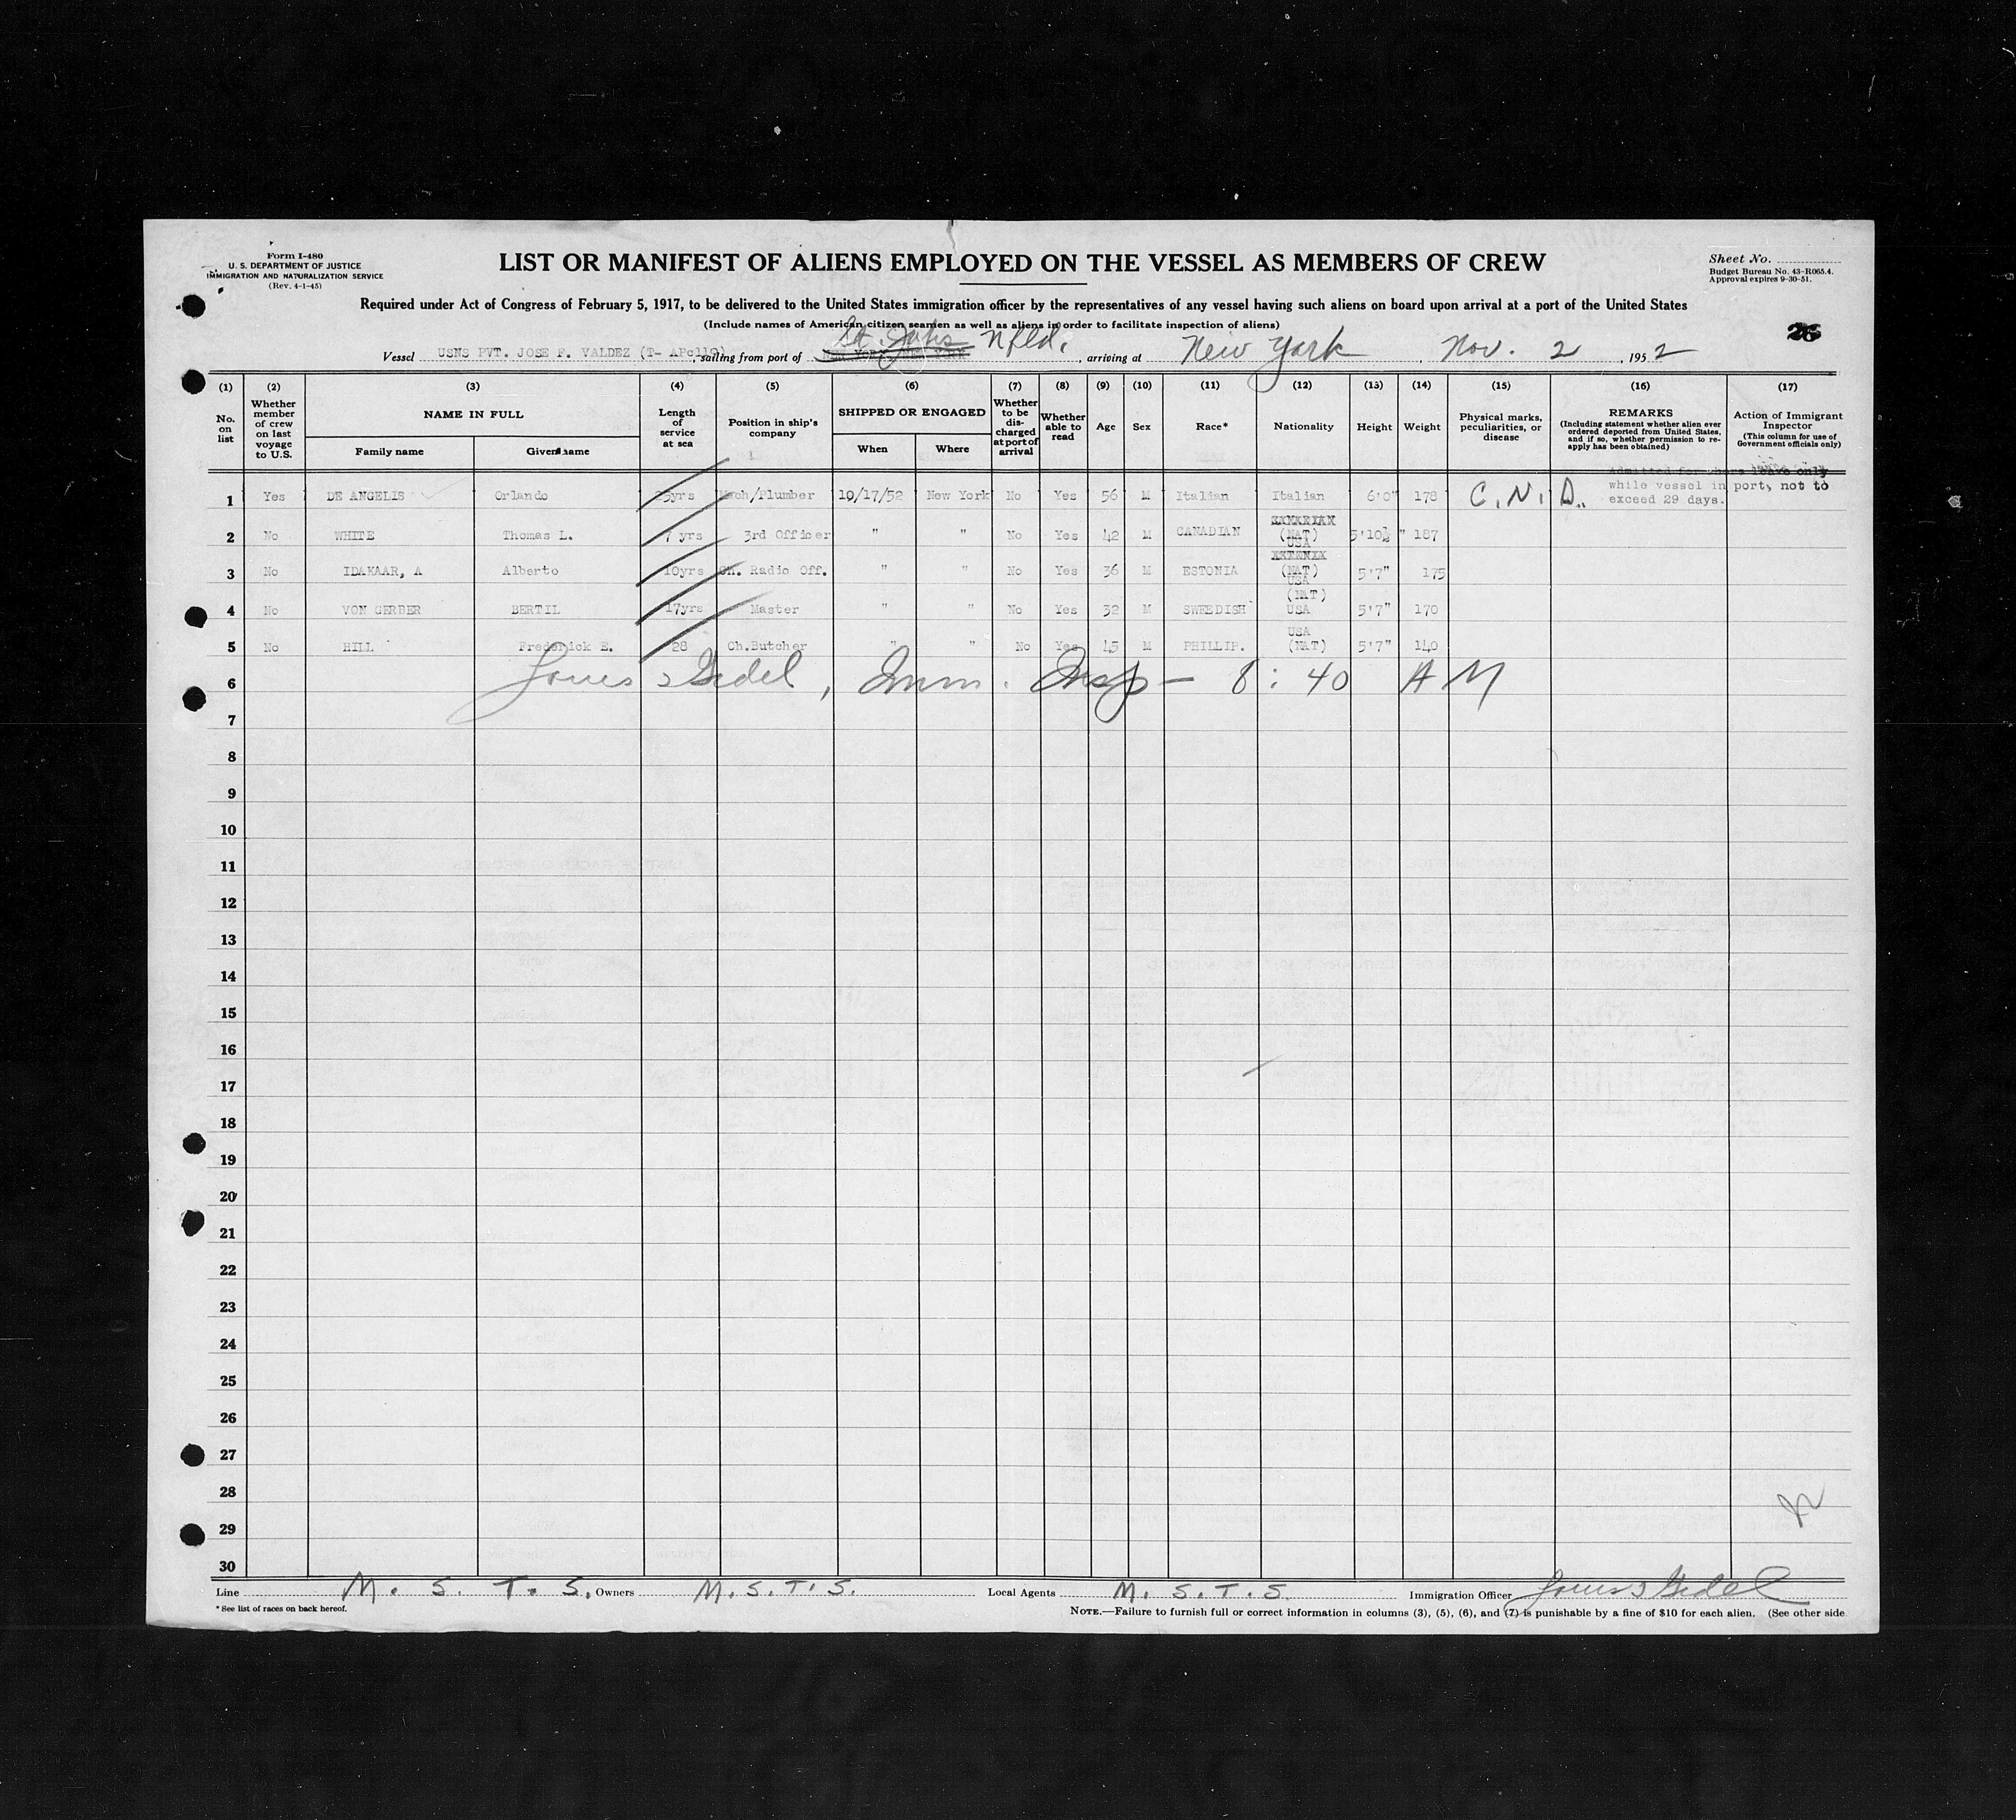 Form I-480
U. S. DEPARTMENT OF JUSTICE
IMMIGRATION AND NATURALIZATION SERVICE
(Rev. 4-1-45)
LIST OR MANIFEST OF ALIENS EMPLOYED ON THE VESSEL AS MEMBERS OF CREW
Sheet No.
Budget Bureau No. 43-R065.4.
Approval expires 9-30-51.
Required under Act of Congress of February 5, 1917, to be delivered to the United States immigration officer by the representatives of any vessel having such aliens on board upon arrival at a port of the United States
(Include names of American citizen seamen as well as aliens in order to facilitate inspection of aliens)
26
Vessel USNS PVT. JOSE F. VALDEZ (T- APc119), sailing from port of St. Johns Nfld., arriving at New York, Nov. 2, 1952
(1) (2) (3) (4) (5) (6) (7) (8) (9) (10) (11) (12) (13) (14) (15) (16) (17)
No. on list
Whether member of crew on last voyage to U.S.
NAME IN FULL
Family name
Given name
Length of service at sea
Position in ship's company
SHIPPED OR ENGAGED
When
Where
Whether to be discharged at port of arrival
Whether able to read
Age
Sex
Race*
Nationality
Height
Weight
Physical marks, peculiarities, or disease
REMARKS
(Including statement whether alien ever ordered deported from United States, and if so, whether permission to reapply has been obtained)
Action of Immigrant Inspector
(This column for use of Government officials only)
Admitted for shore leave only
while vessel in port, not to
exceed 29 days.
1 Yes DE ANGELIS Orlando 25yrs Mach/Plumber 10/17/52 New York No Yes 56 M Italian Italian 6'0" 178 C.N.D.
2 No WHITE Thomas L. 7 yrs 3rd Officer " " No Yes 42 M CANADIAN (NAT) USA 5'10½" 187
3 No IDAKAAR, A Alberto 10yrs Ch. Radio Off. " " No Yes 36 M ESTONIA (NAT) USA 5'7" 175
4 No VON GERBER BERTIL 17yrs Master " " No Yes 32 M SWEEDISH (NAT) USA 5'7" 170
5 No HILL Frederick E. 28 Ch.Butcher " " No Yes 45 M PHILLIP. USA (NAT) 5'7" 140
6 Imm. Insp - 8:40 AM
7
8
9
10
11
12
13
14
15
16
17
18
19
20
21
22
23
24
25
26
27
28
29
30
Line M. S. T. S. Owners M.S.T.S. Local Agents M.S.T.S. Immigration Officer
* See list of races on back hereof.
NOTE.—Failure to furnish full or correct information in columns (3), (5), (6), and (7) is punishable by a fine of $10 for each alien. (See other side